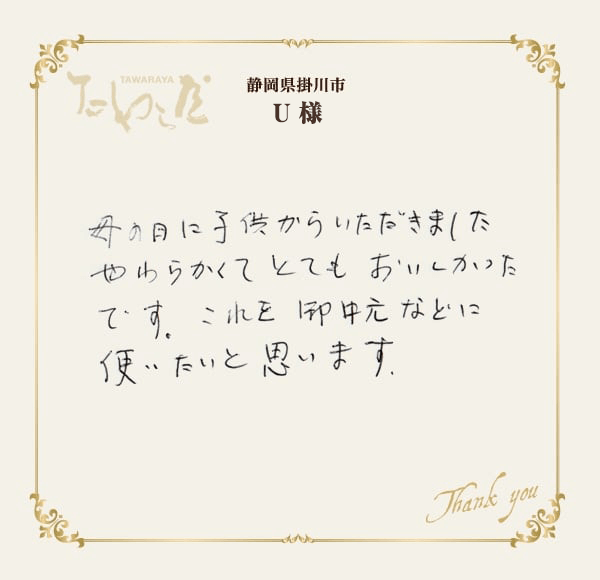 TAWARAYA
たわら屋
静岡県掛川市
U 様
母の日に子供からいただきました
やわらかくてとてもおいしかった
です。これを御中元などに
使いたいと思います.
Thank you